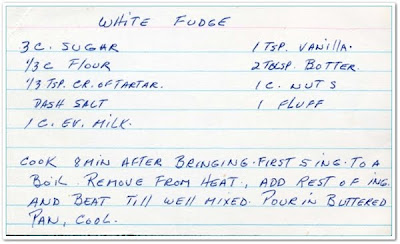 WHITE FUDGE
3 C. SUGAR 1 TSP. VANILLA.
1/3 C FLOUR 2 TBLSP. BOTTER.
1/3 TSP. CR. OF TARTAR. 1 C. NUTS
DASH SALT 1 FLUFF
1 C. EV. MILK.
COOK 8 MIN AFTER BRINGING. FIRST 5 ING. TO A
BOIL. REMOVE FROM HEAT, ADD REST OF ING.
AND BEAT TILL WELL MIXED. POUR IN BUTTERED
PAN, COOL.